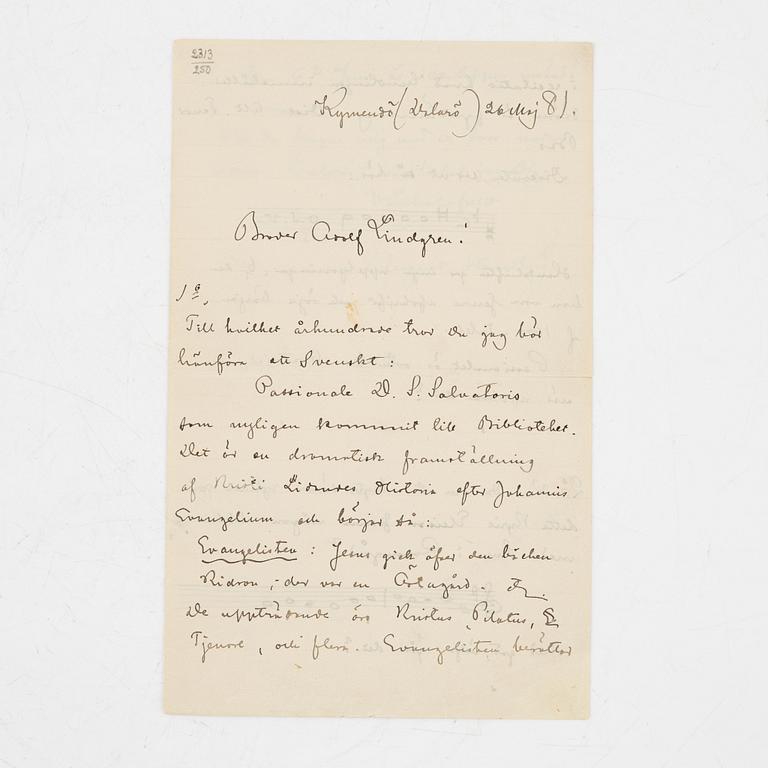 2313
250
Kymendö (Dalarö) 26 Maj 81.
Broder Adolf Lindgren!
1º,
Till hvilket århundrade tror Du jag bör
hänföra ett Svenskt:
Passionale D. S. Salvatoris
som nyligen kommit till Biblioteket.
Det är en dramatisk framställning
af Kristi Lidandes Historia efter Johannis
Evangelium och börjar så:
Evangelisten: Jesus gick öfver den bäcken
Kidron, der var en Örtagård.
De uppträdande äro Kristus, Pilatus,
Tjenare, och flera. Evangelisten berättar